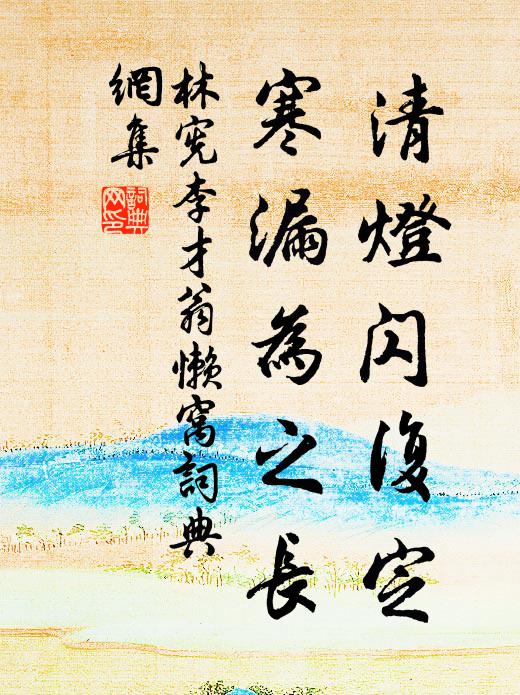 清燈閃復定
寒漏為之長
林憲李才翁懶窩詞典
網集
詞典
网印